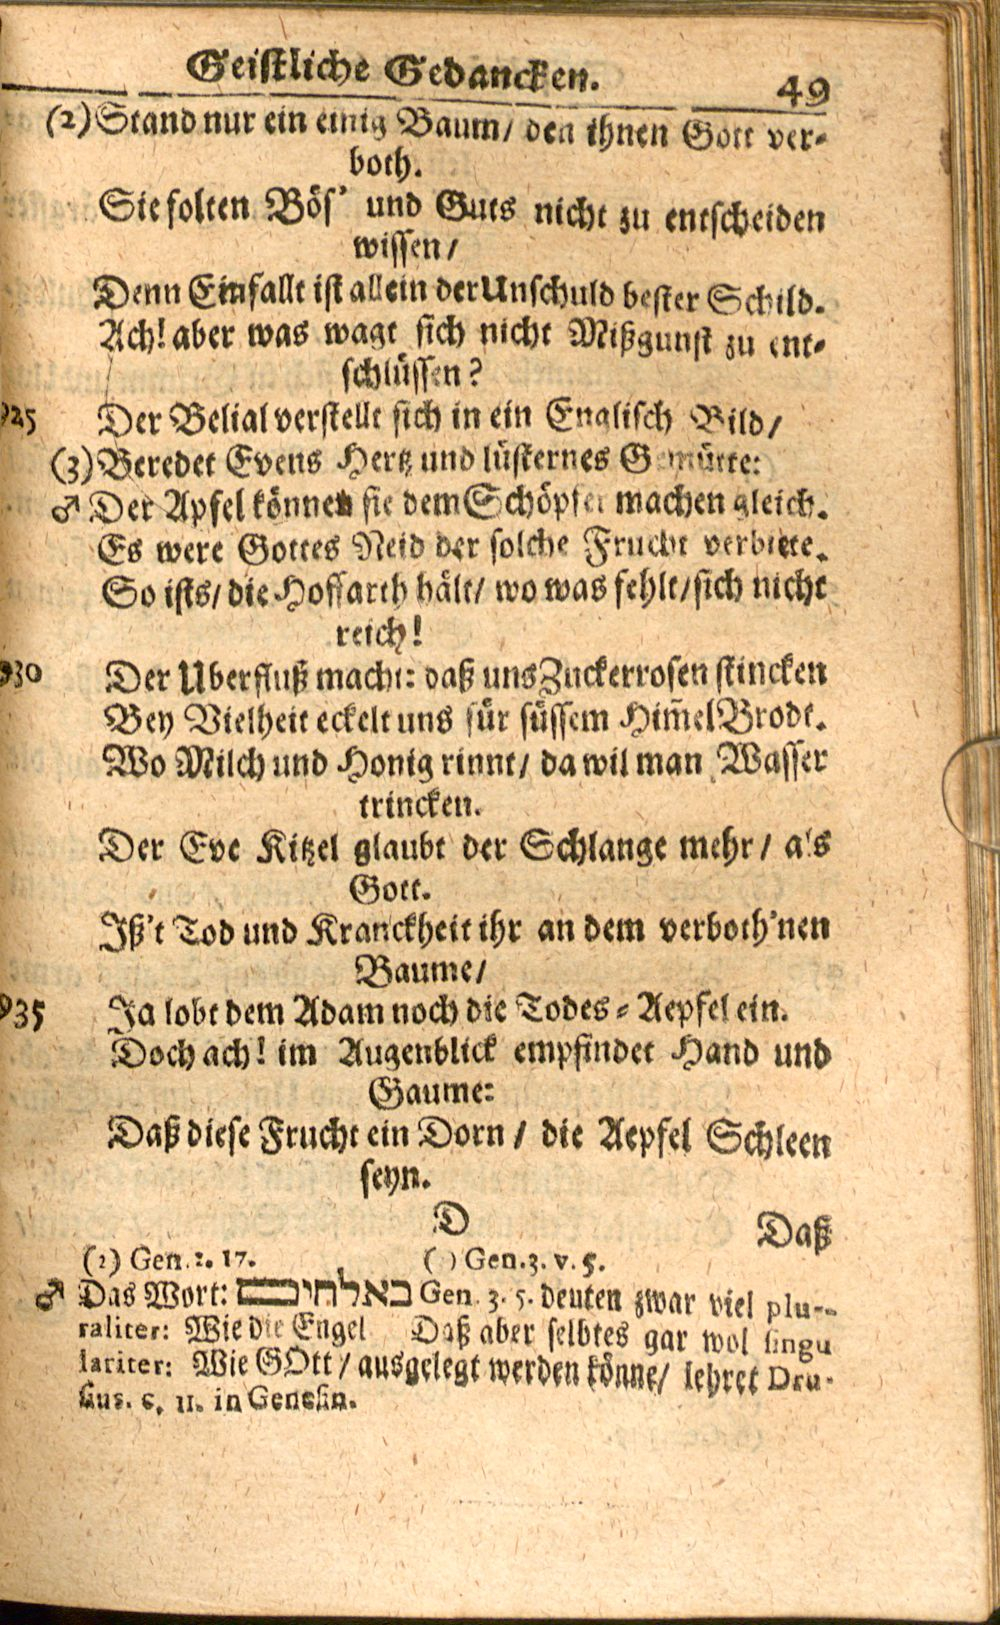 Geistliche Gedancken. 49
(2) Stand nur ein einig Baum/ den ihnen Gott ver-
both.
Sie solten Bös' und Guts nicht zu entscheiden
wissen/
Denn Einfallt ist allein der Unschuld bester Schild.
Ach! aber was wagt sich nicht Mißgunst zu ent-
schlüssen?
925 Der Belial verstellt sich in ein Englisch Bild/
(3) Beredet Evens Hertz und lüsternes Gemütte:
♂ Der Apfel können sie dem Schöpfer machen gleich.
Es were Gottes Neid der solche Frucht verbitte.
So ists/ die Hoffarth hält/ wo was fehlt/ sich nicht
reich!
930 Der Uberfluß macht: daß uns Zuckerrosen stincken
Bey Vielheit eckelt uns für süssem Him̃el Brodt.
Wo Milch und Honig rinnt/ da wil man Wasser
trincken.
Der Eve Kitzel glaubt der Schlange mehr/ als
Gott.
Ißt't Tod und Kranckheit ihr an dem verboth'nen
Baume/
935 Ja lobt dem Adam noch die Todes-Aepfel ein.
Doch ach! im Augenblick empfindet Hand und
Gaume:
Daß diese Frucht ein Dorn/ die Aepfel Schleen
seyn.
D Daß
(2) Gen. 2. 17. ( ) Gen. 3. v. 5.
♂ Das Wort: כאלהים Gen. 3. 5. deuten zwar viel plu-
raliter: Wie die Engel Daß aber selbtes gar wol singu
lariter: Wie GOtt/ ausgelegt werden könne/ lehret Dru-
sius. c. 11. in Genesin.